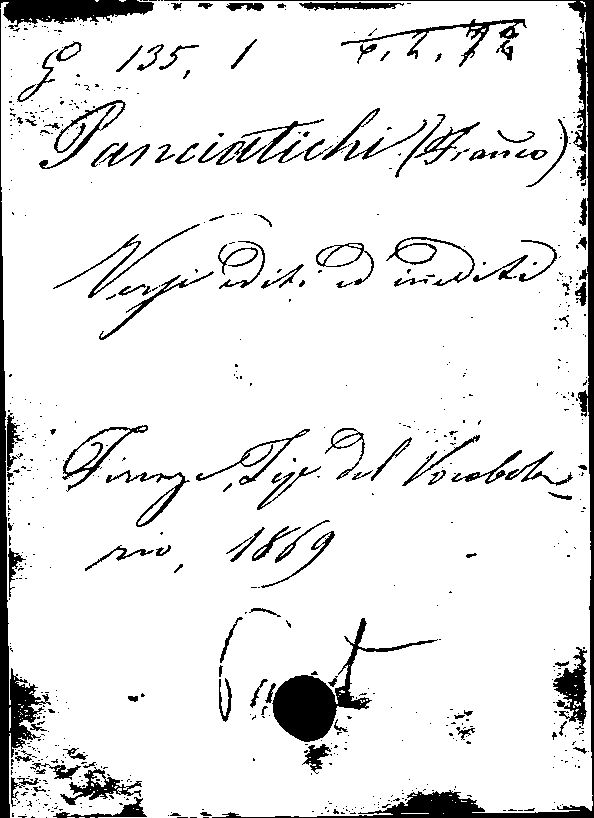 G. 135, 1
Panciatichi (Franco)
Versi editi ed inediti
Firenze, Tip. del Vocabola-
rio, 1869